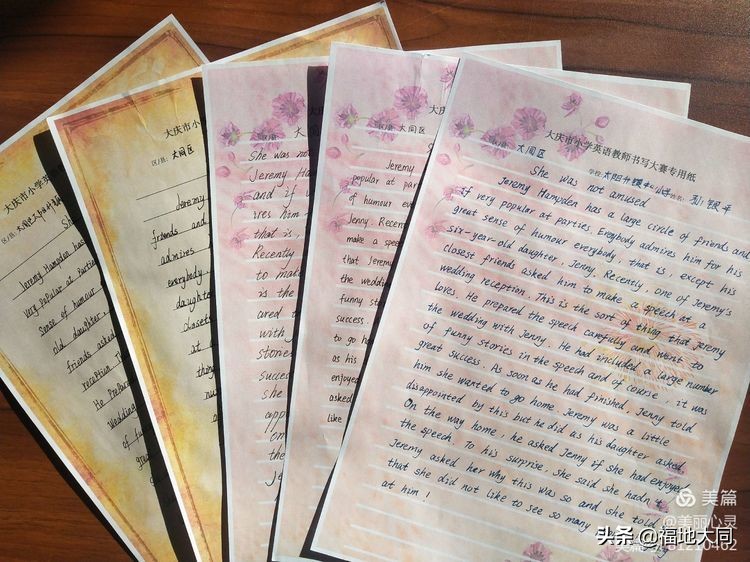 大庆市小学英语
区/县: 大同区
Jeremy Hampden has
very popular at parties
Sense of humour
old daughter,
friends asked
reception
He prepared
wedding
of fun
大庆市小
区/县: 大同区
Jeremy
friends and
admires
everybody
daughter
closets
at a
区/县: 大
She was not
Jeremy Ha
and if
ires him
that is,
Recently
to make
is the
ared t
with
stories
success
she
the
大
区/县: 大同区
Jeremy
popular at par
of humour eve
Jenny. Recen
make a spee
that Jerem
the wedding
funny sto
success.
to go ho
as his
enjoyed
asked
like
大庆市小学英语教师书写大赛专用纸
区/县: 大同区
She was not amused
Jeremy Hamyden has a large circle of friends and
if very popular at parties. Everybody admires him for his
great sense of humour everybody, that is, except his
six-year-old daughter, Jenny. Recently, one of Jeremy's
closest friends asked him to make a speech at a
wedding reception. This is the sort of thing that Jeremy
loves. He prepared the speech carefully and went to
the wedding with Jenny. He had included a large number
of funny stories in the speech and of course, it was
great success. As soon as he had finished, Jenny told
him she wanted to go home. Jeremy was a little
disappointed by this but he did as his daughter asked
On the way home, he asked Jenny if she had enjoyed
the speech. To his surprise, she said she hadn't
Jeremy asked her why this was so and she told
that she did not like to see so many
at him!
美篇
@美丽心灵
美篇号: 81210462
头条 @福地大同